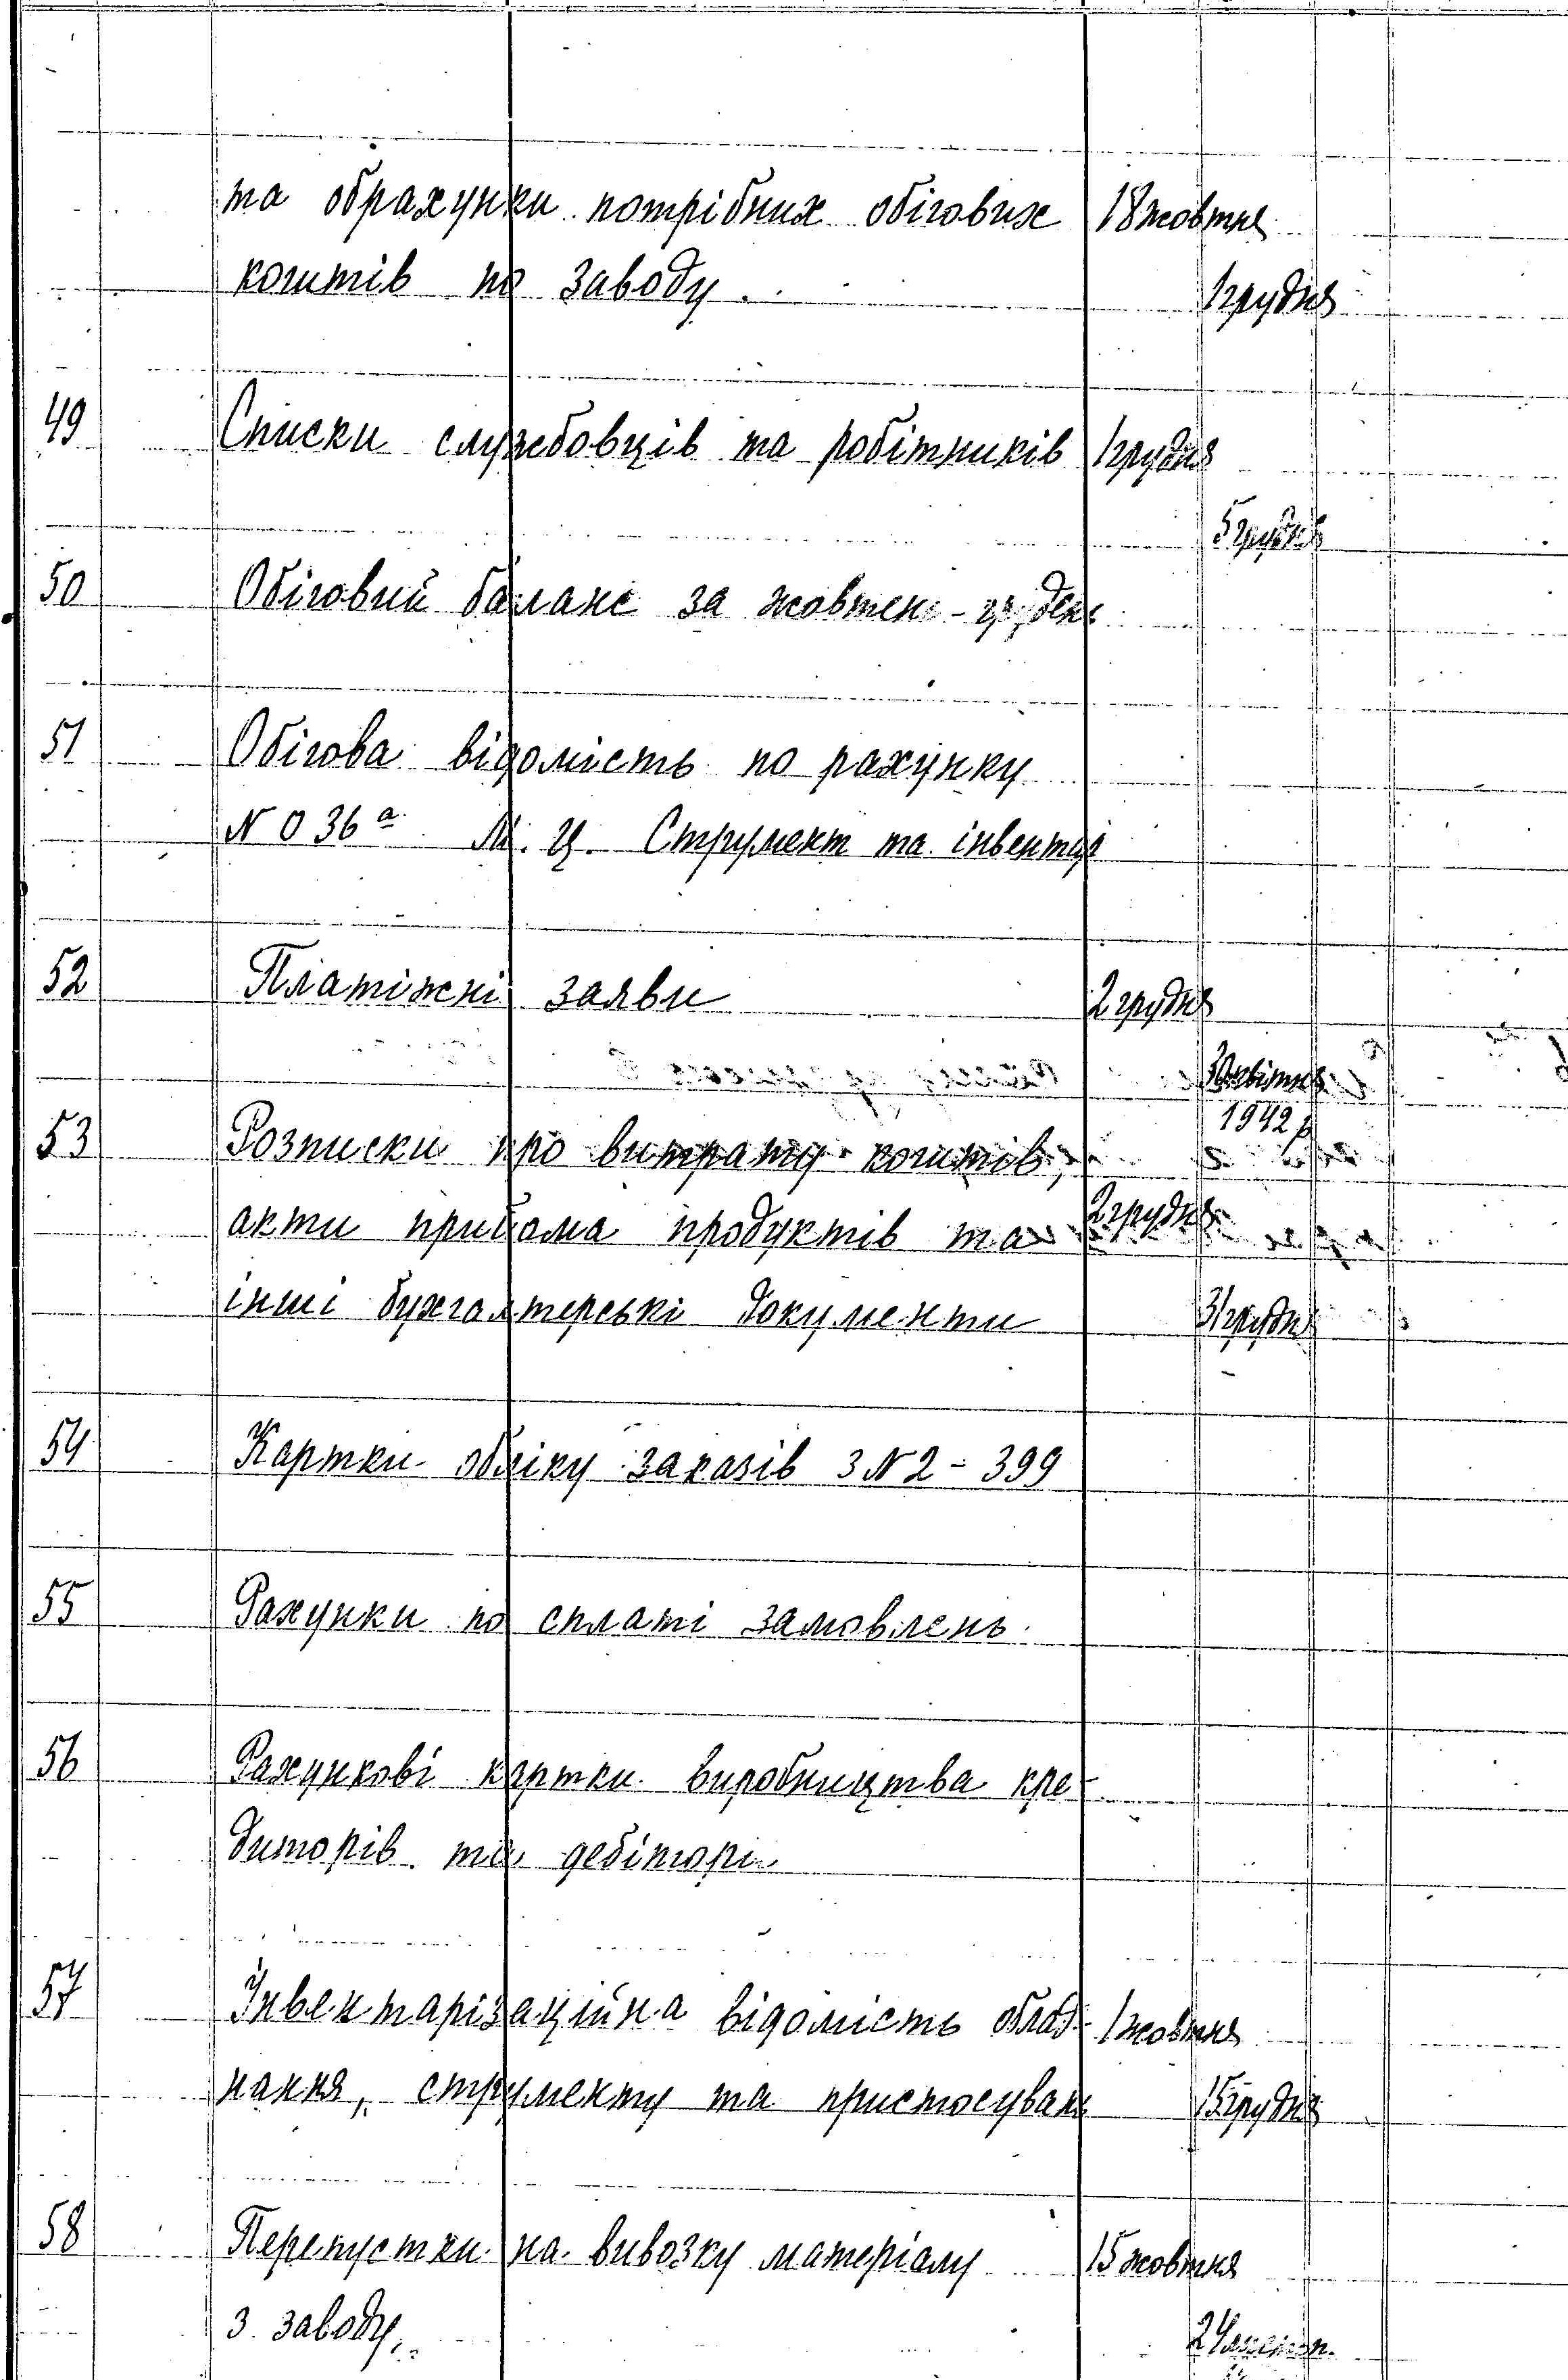 та обрахунки потрібних обігових 18 жовтня
коштів по заводу. 1 грудня
49 Списки службовців та робітників 1 грудня
5 грудня
50 Обіговий баланс за жовтень-грудень
51 Обігова відомість по рахунку
№ 036 а М. Ц. Струмент та інвентар
52 Платіжні заяви 2 грудня
30 квітня
1942 р
53 Розписки про витрату коштів,
акти прийома продуктів та 2 грудня
інші бухгалтерські документи 31 грудня
54 Картки обліку заказів з № 2 - 399
55 Рахунки по сплаті замовлень.
56 Рахункові картки виробництва кре-
диторів та дебіторів
57 Інвентарізаційна відомість облад- 1 жовтня
нання, струменту та пристосувань 15 грудня
58 Перепустки на вивозку матеріалу 15 жовтня
з заводу.